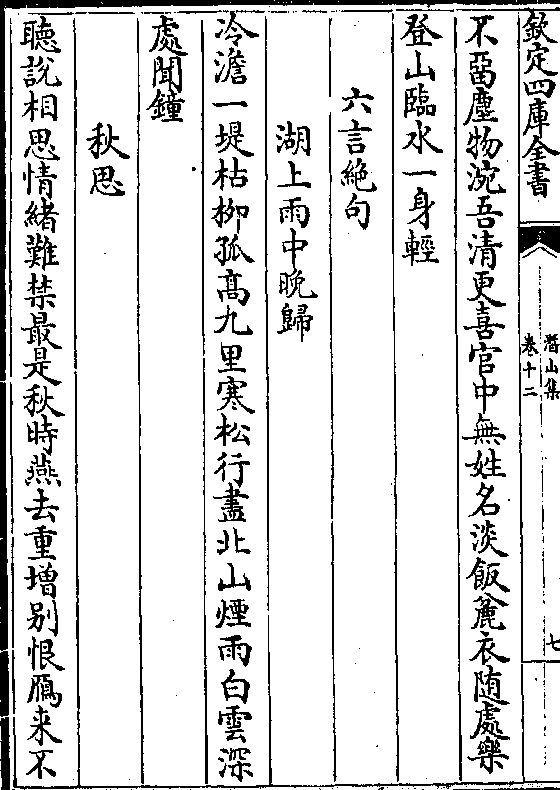 欽定四庫全書
曆山集
卷十二
七
不啚塵物涴吾清更喜官中無姓名淡飯麄衣随處樂
登山臨水一身輕
六言絶句
湖上雨中晚歸
冷澹一堤枯柳孤高九里寒松行盡北山煙雨白雲深
處聞鐘
秋思
聽說相思情緒難禁最是秋時燕去重增别恨鴈来不